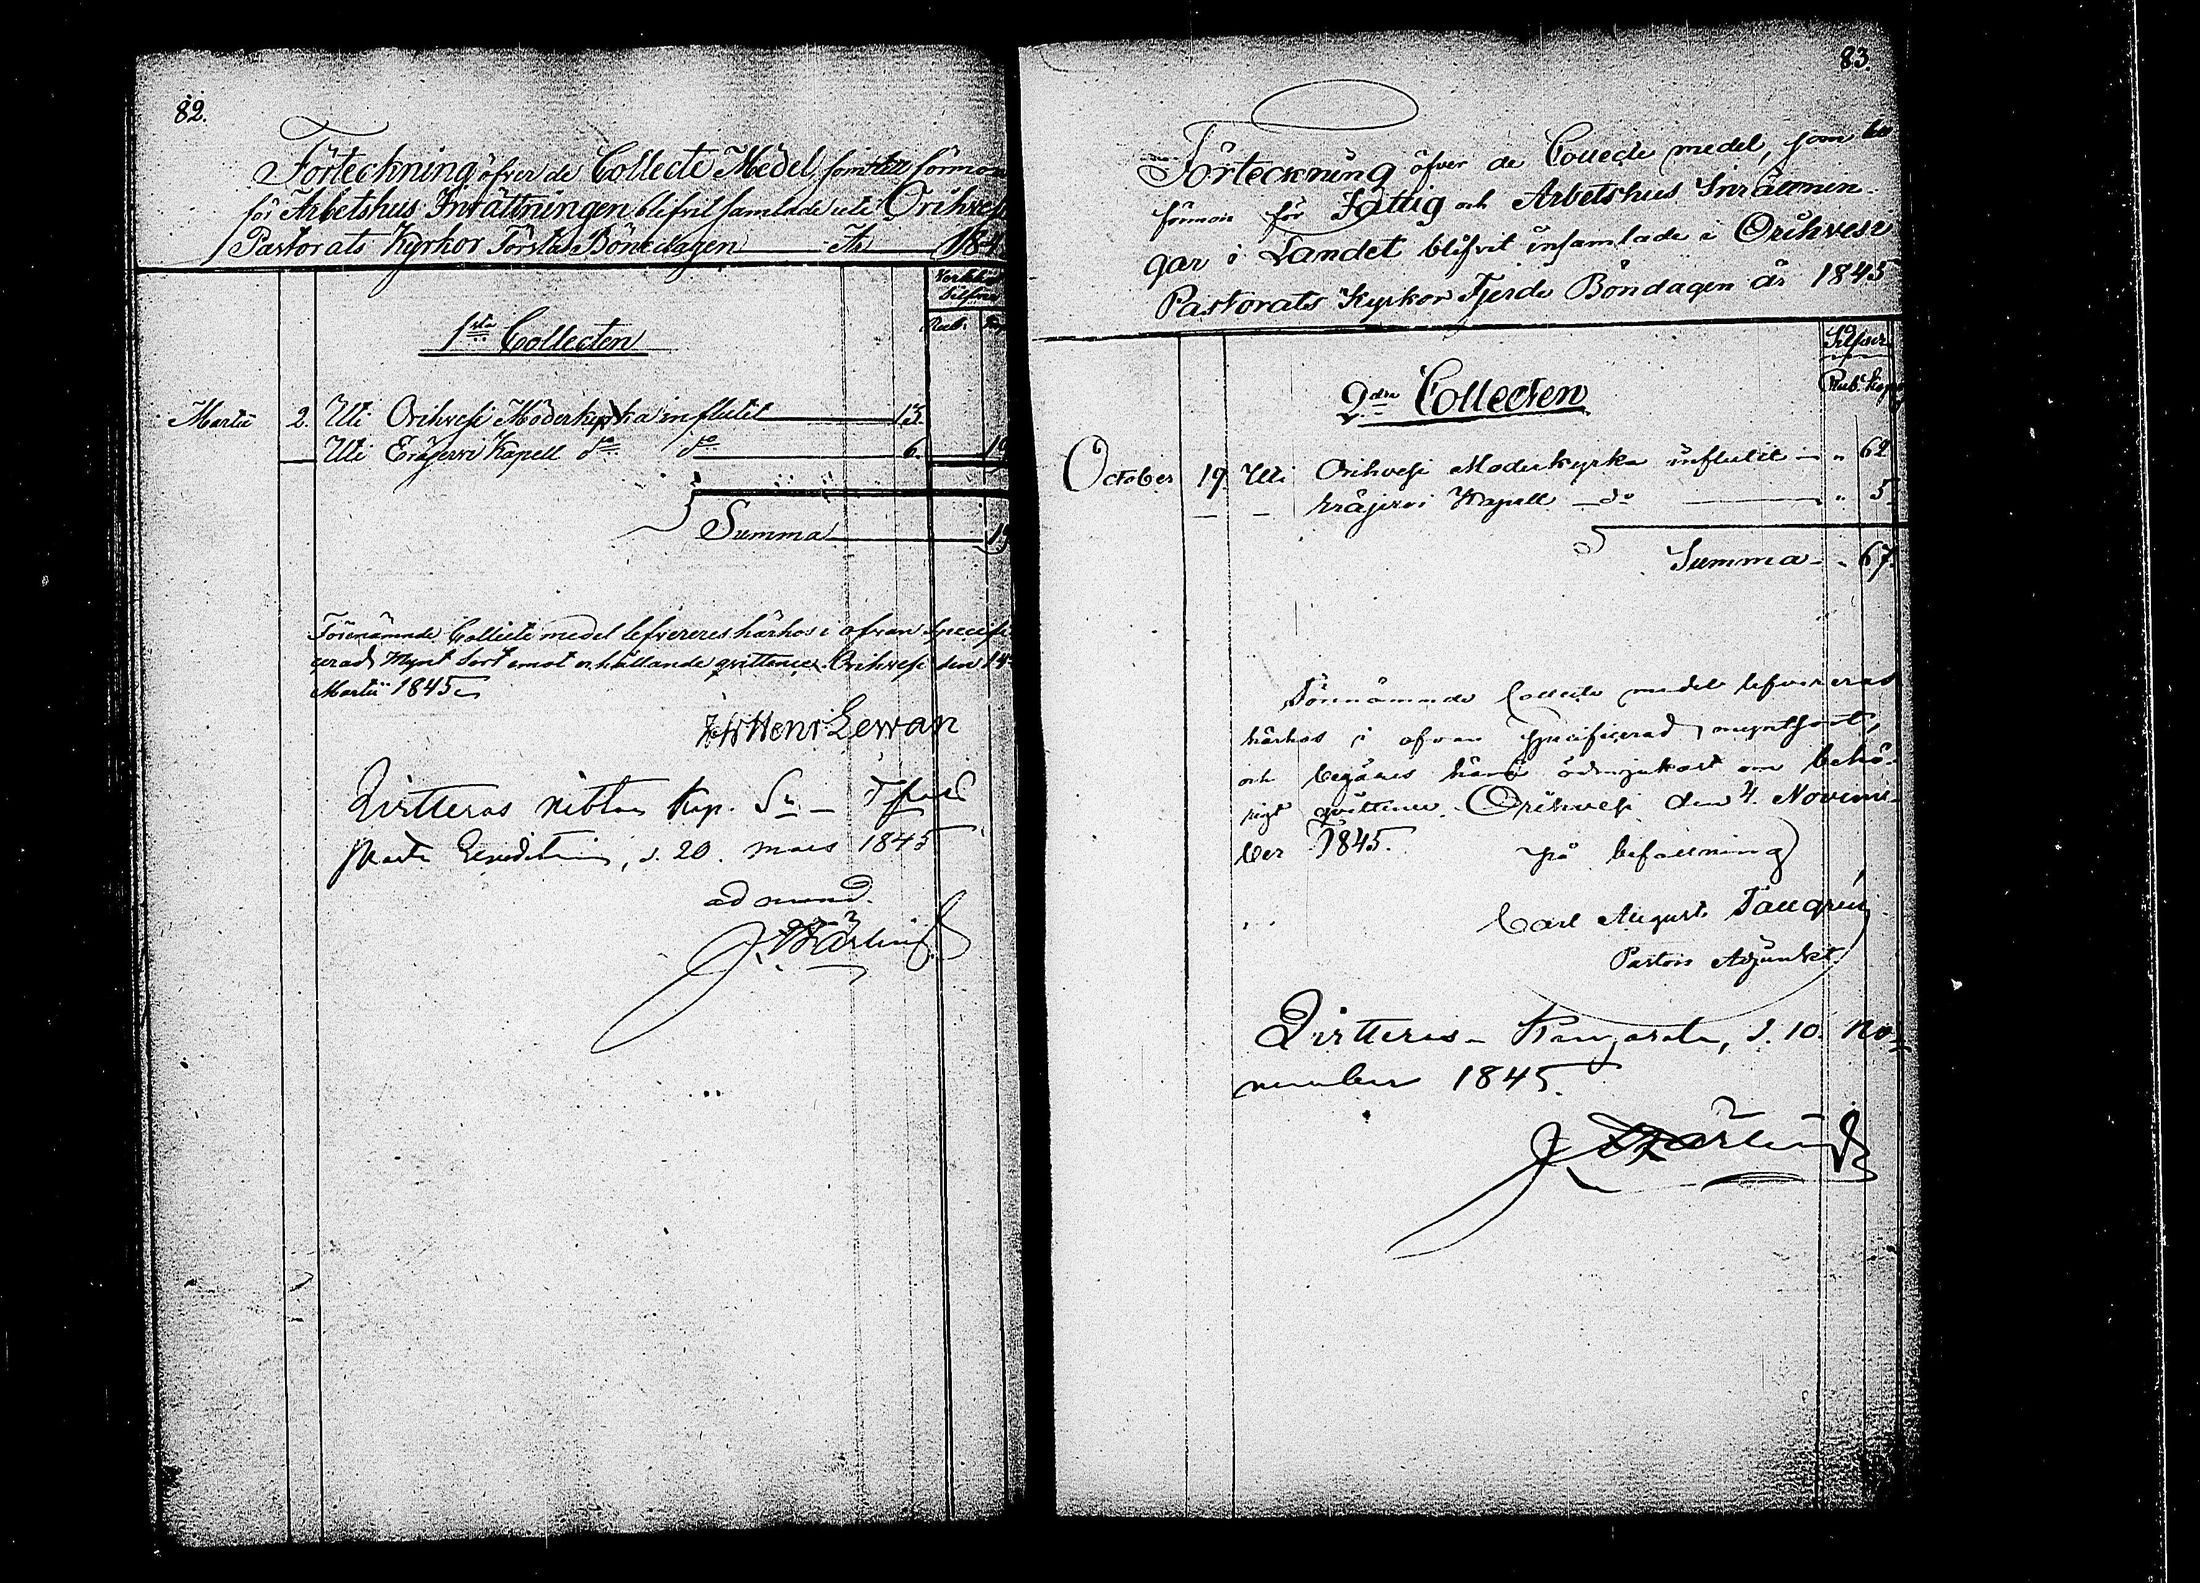 82.
Förteckning öfver de Collecte Medel, som till förmon
för Arbetshus Inrättningen blifvit samlade uti Orihvesi
Pastorats Kyrkor Första Bönedagen År 184
Silfver
Rub. Kop
1sta Collecten
Martii 2. Uti Orihvesi Moderkyrka influtit 13.
Uti Eräjerwi Kapell do do 6. 19
Summa 19
Förenämnde Collecte medel lefvereres härhos i ofvan specifi
cerad Mynt Sort emot erhållande qvittence. Orihvesi den 14
Martii 1845
Henr Lewan
Qvitteras nitton Kop. Sr
d. 20. mars 1845
ad mand.
J. Färling
83.
Förteckning öfver de Collecte medel, som till
förmon för Fattig och Arbetshus Inrättnin-
gar i Landet blifvit insamlade i Orihvesi
Pastorats Kyrkor Fjerde Böndagen år 1845
Silfver
Rub. Kop
2dra Collecten
October 19. Uti Orihvesi Moderkyrka influtit " 62
Eräjervi Kapell do " 5
Summa " 67.
Förenämnde Collecte medel lefvereras
härhos i ofvan specificerad myntsort,
och begäres härå ödmjukast om behö-
rigt qvittence. Orihvesi den 4. Novem-
ber 1845. på befallning
Carl August Tallqvist
Pastors Adjunkt.
Qvitteras Kangasala, d. 10. No-
vember 1845.
J. Färling